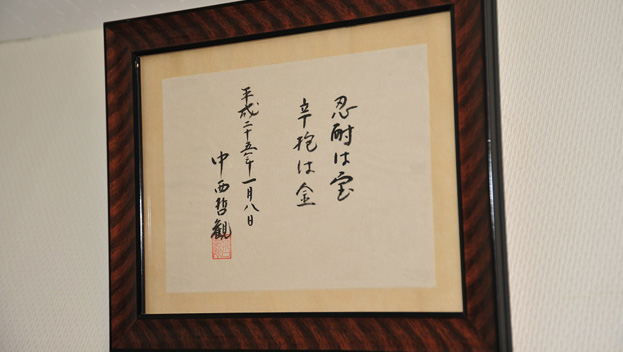 忍耐は宝
辛抱は金
平成二十五年一月八日
中西哲観